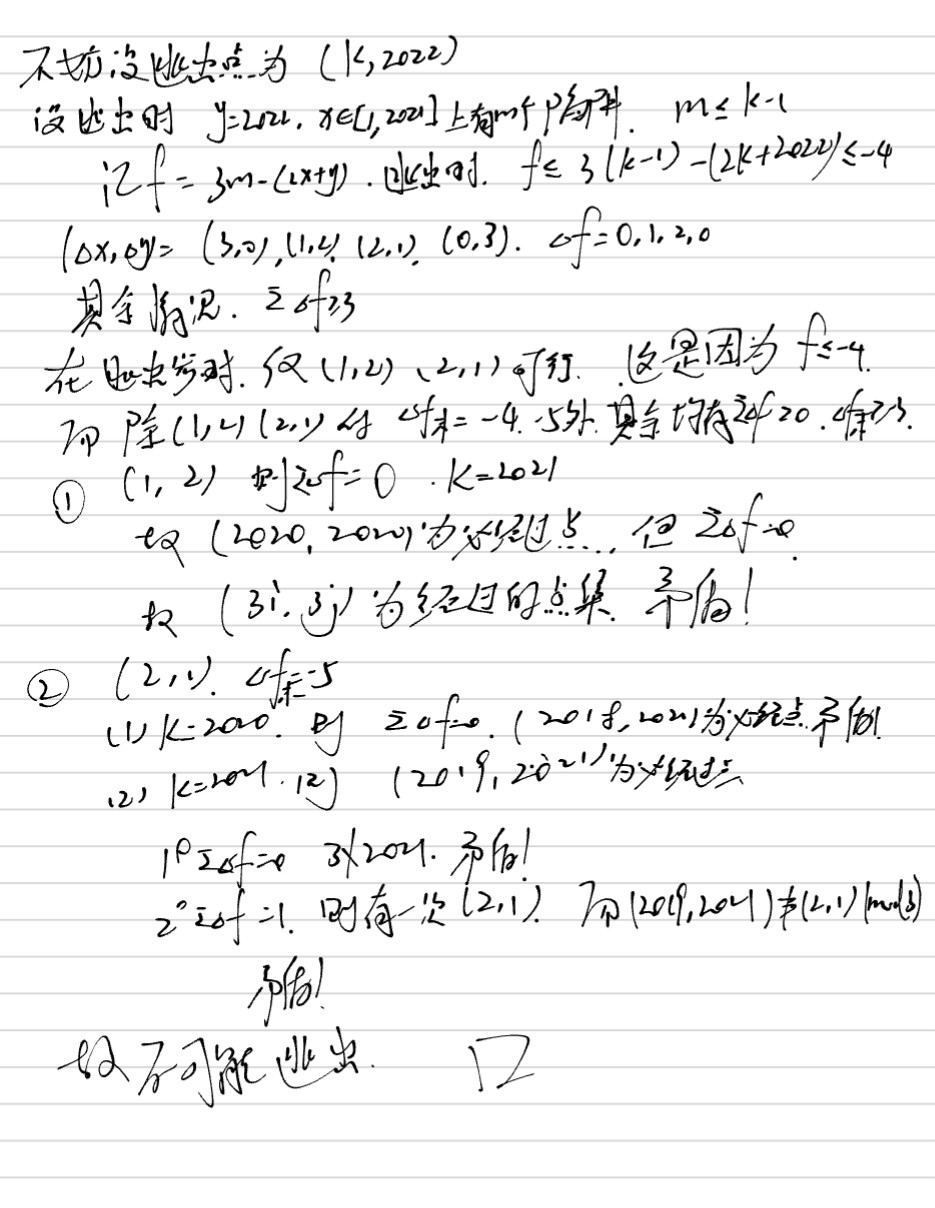 不妨设逃出点为 (k,2022)
设逃出时 y=2022, x∈[1,2021]上有m个障碍. m≤k-1
记f=3m-(2x+y). 逃出时. f≤3(k-1)-(2k+2022)≤-4
(Δx,Δy)= (3,0),(1,2),(2,1),(0,3). Δf=0,1,2,0
其余情况. ΣΔf≥3
在逃出步时. 仅(1,2)、(2,1)可行. 这是因为 f≤-4.
而除(1,2)(2,1)有Δf末=-4,-5外.其余均有ΣΔf≥0.
① (1,2) 则ΣΔf=0 .k=2021
故 (2020,2020)为必经过点, 但ΣΔf=0.
故 (3i,3j)为经过的点集. 矛盾!
② (2,1). Δf末=-5
(1) k=2020. 则 ΣΔf=0. (2018,2021)为必经点.矛盾!
(2) k=2021. 则 (2019,2021)为必经过点
1° ΣΔf=0 3∤2021. 矛盾!
2° ΣΔf=1. 则有一次(2,1). 而(2019,2021)≢(2,1)(mod3)
矛盾!
故不可能逃出. □